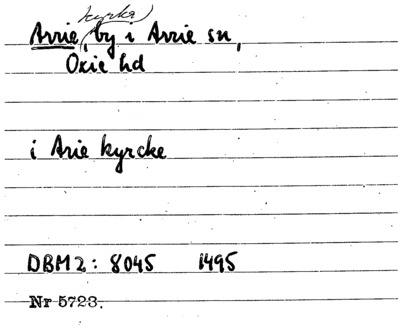 kyrka
Arrie, by i Arrie sn,
Oxie hd
i Arie kyrcke
DBM2: 8045 1495
Nr 5723.